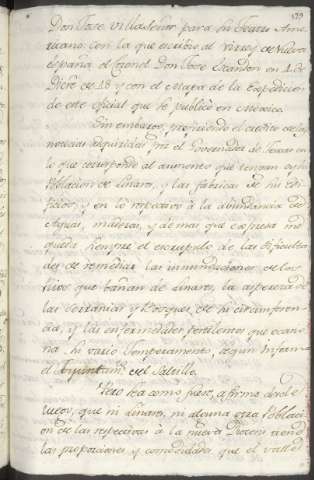 179
Don Jose Villaseñor para su Teatro Ame-
ricano, con la que escribio al Virrey de Nueva
españa el Coronel Don Jose Escandon en 1 de
Dicre de 18 y con el Mapa de la Expedicion
de este oficial que se publicó en Mexico.
Sin embargo, prefiriendo el credito de las
noticias adquiridas por el Governador de Texas en
lo que corresponde al aumento que tengan
Poblacion de Linares, y las fabricas de sus edi-
ficios, y en lo respectivo à la abundancia de
Aguas, maderas, y demas que expresa me
queda siempre el escrupulo de las dificulta-
des de remediar las inundaciones de los
Rios que bañan de Linares, la aspereza de
las Serranias y Bosques de su circumferen-
cia, y las enfermedades pestilentes que ocacio-
na su vario temperamento, segun Informe
el Ayuntamto del Saltillo.
Pero sea como fuere, afirmo de
que ni Linares, ni alguna otra Poblaci-
on de las respectivas à la nueva Diocesi, tiene
las proporciones, y comodidades que el Valle